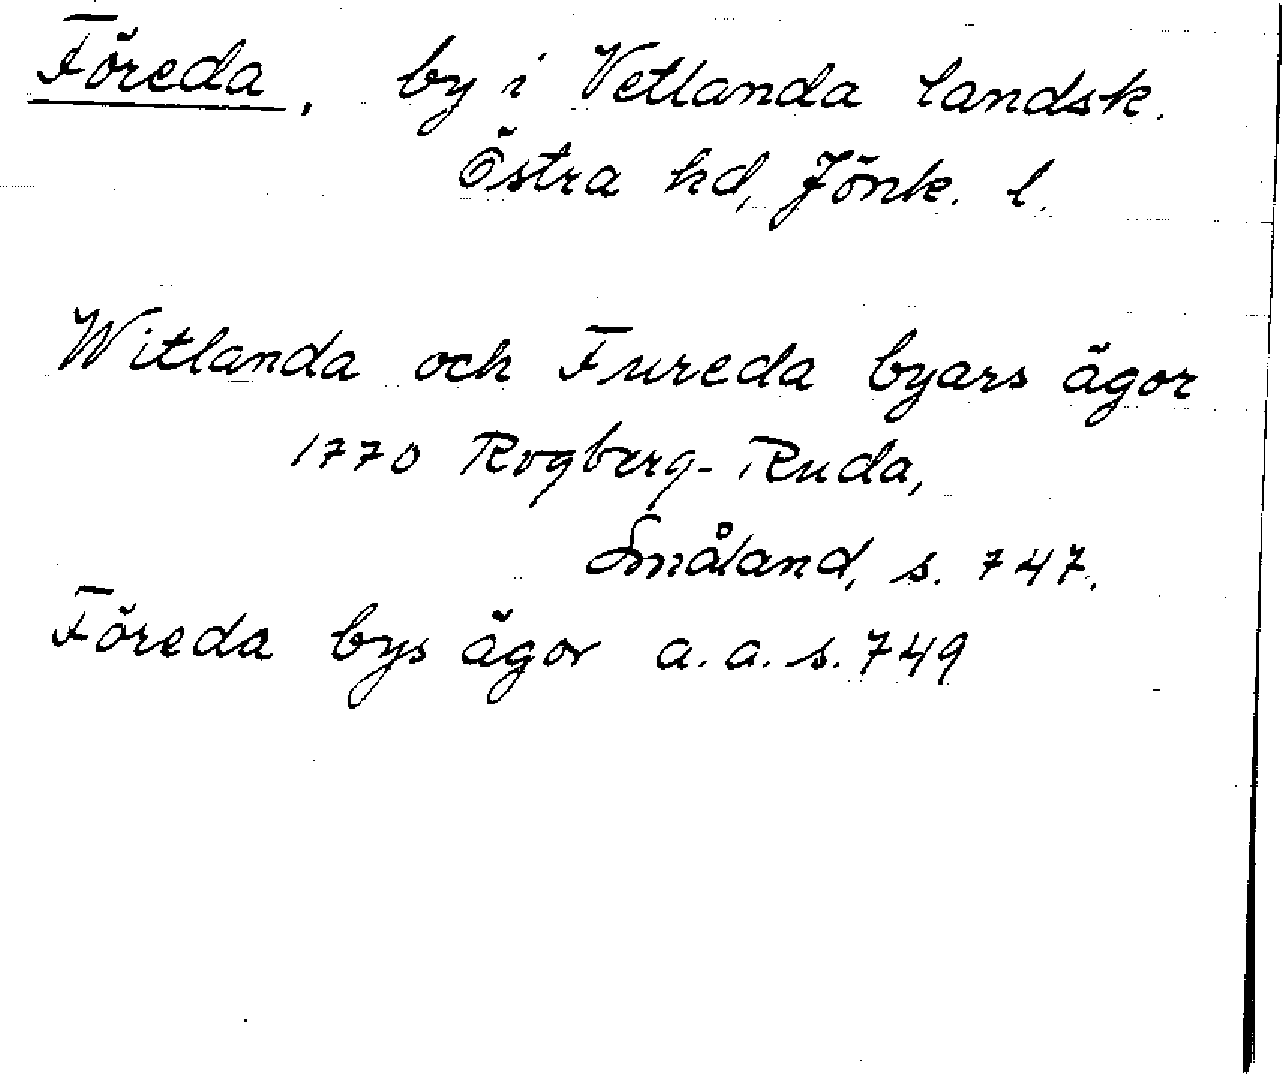 Föreda, by i Vetlanda landsk.
Östra hd, Jönk. l.
Witlanda och Fureda byars ägor
1770 Rogberg-Ruda,
Småland, s. 747.
Föreda bys ägor a.a. s. 749